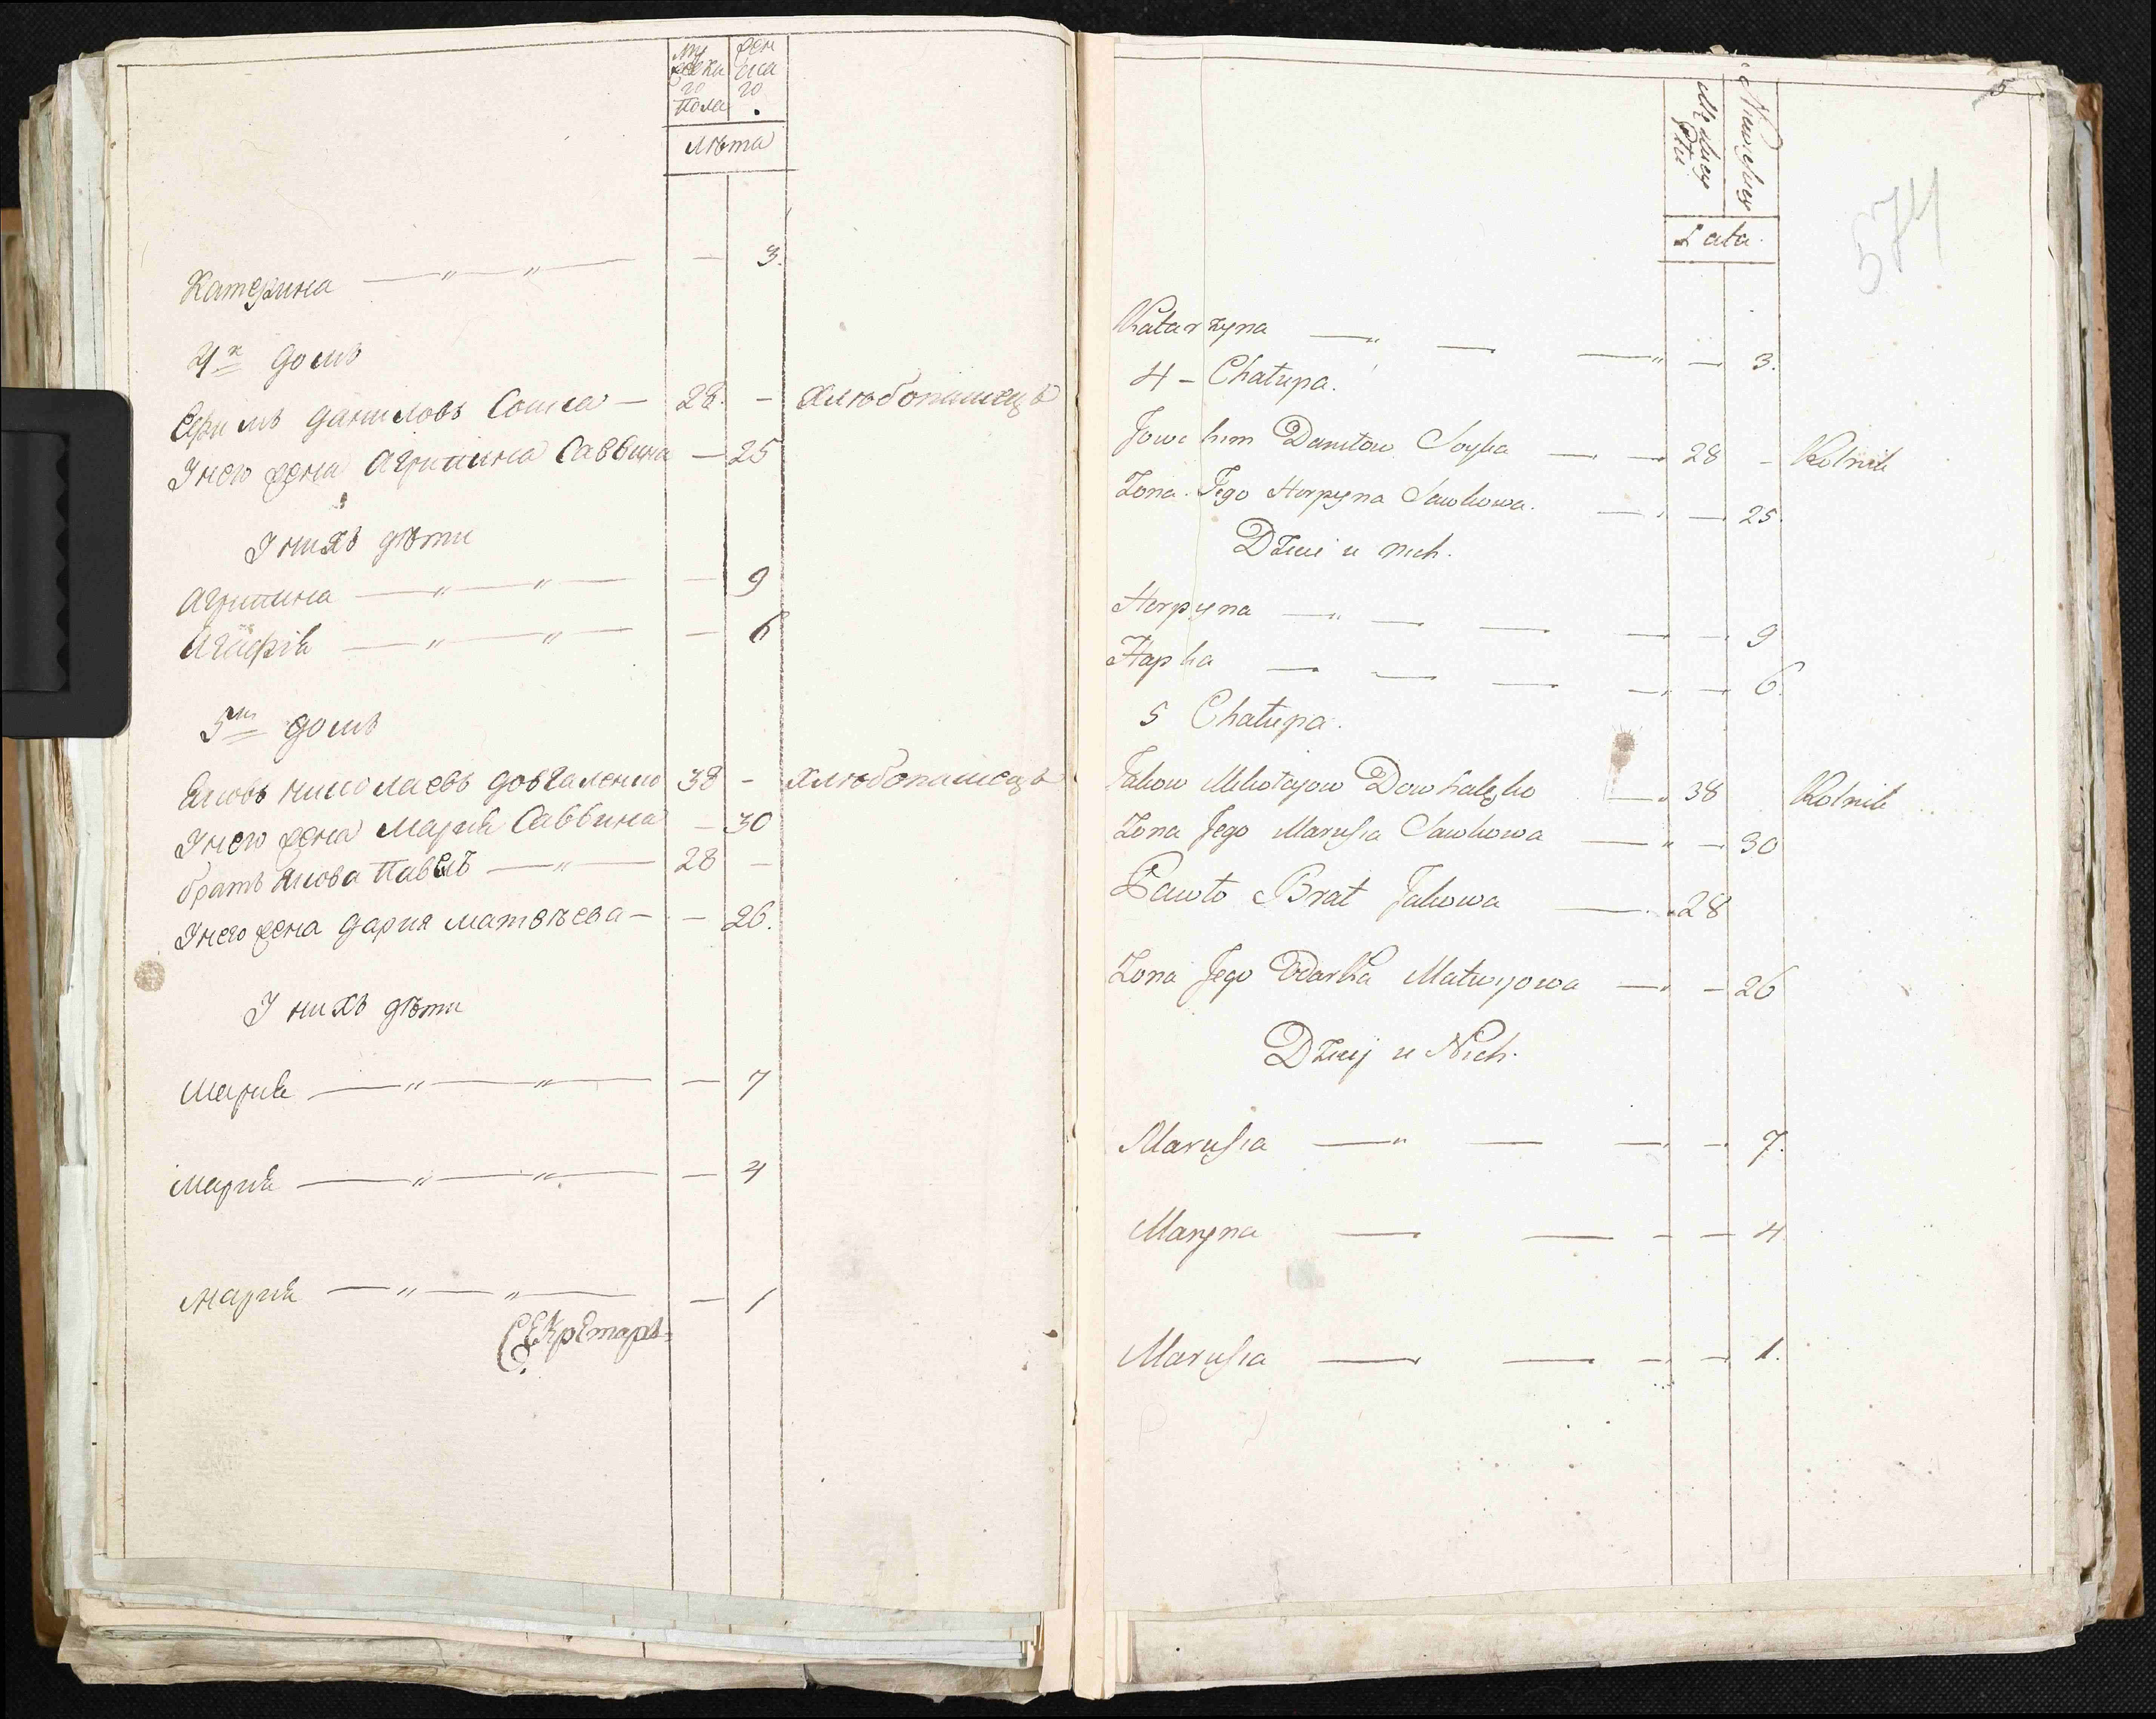 му жен
жска ска
го го
пола
лѣта
Катерина — „ — „ — — 3.
4й домъ
Ефимъ Даниловъ Сойка — 28. - хлѣбопашецъ
У него жена Агрипина Саввина — 25
У нихъ дѣти
Агрипина — „ — „ — — 9
Агафія — „ — „ — — 6
5й домъ
Яковъ Николаевъ Довгаленко 38 - хлѣбопашецъ
У него жена Марія Саввина — 30
братъ Якова Павелъ — „ — 28 —
У него жена Дария Матвѣева — — 26.
У нихъ дѣти
Марія — „ — „ — — 7
Марія — „ — „ — — 4
Марія — „ — „ — — 1
СЕкрЕтарь
5
574
Lata.
Katarzyna — „ — — „ — 3.
4 - Chałupa.
Jowchim Daniłow Soyka — — 28 - Rolnik
Zona Jego Horpyna Sawkowa. — — 25.
Dzieci u nich.
Horpyna — „ — — — — 9
Hapka — — — — — 6.
5 Chałupa.
Jakow Mikołajow Dowhalęko — 38 Rolnik
Zona Jego Marusia Sawkowa — „ — 30
Pawło Brat Jakowa — 28
Zona Jego Odarka Matwijowa — — 26
Dziecj u Nich.
Marusia — „ — — — 7.
Maryna — — — — 4
Marusia — — — — 1.